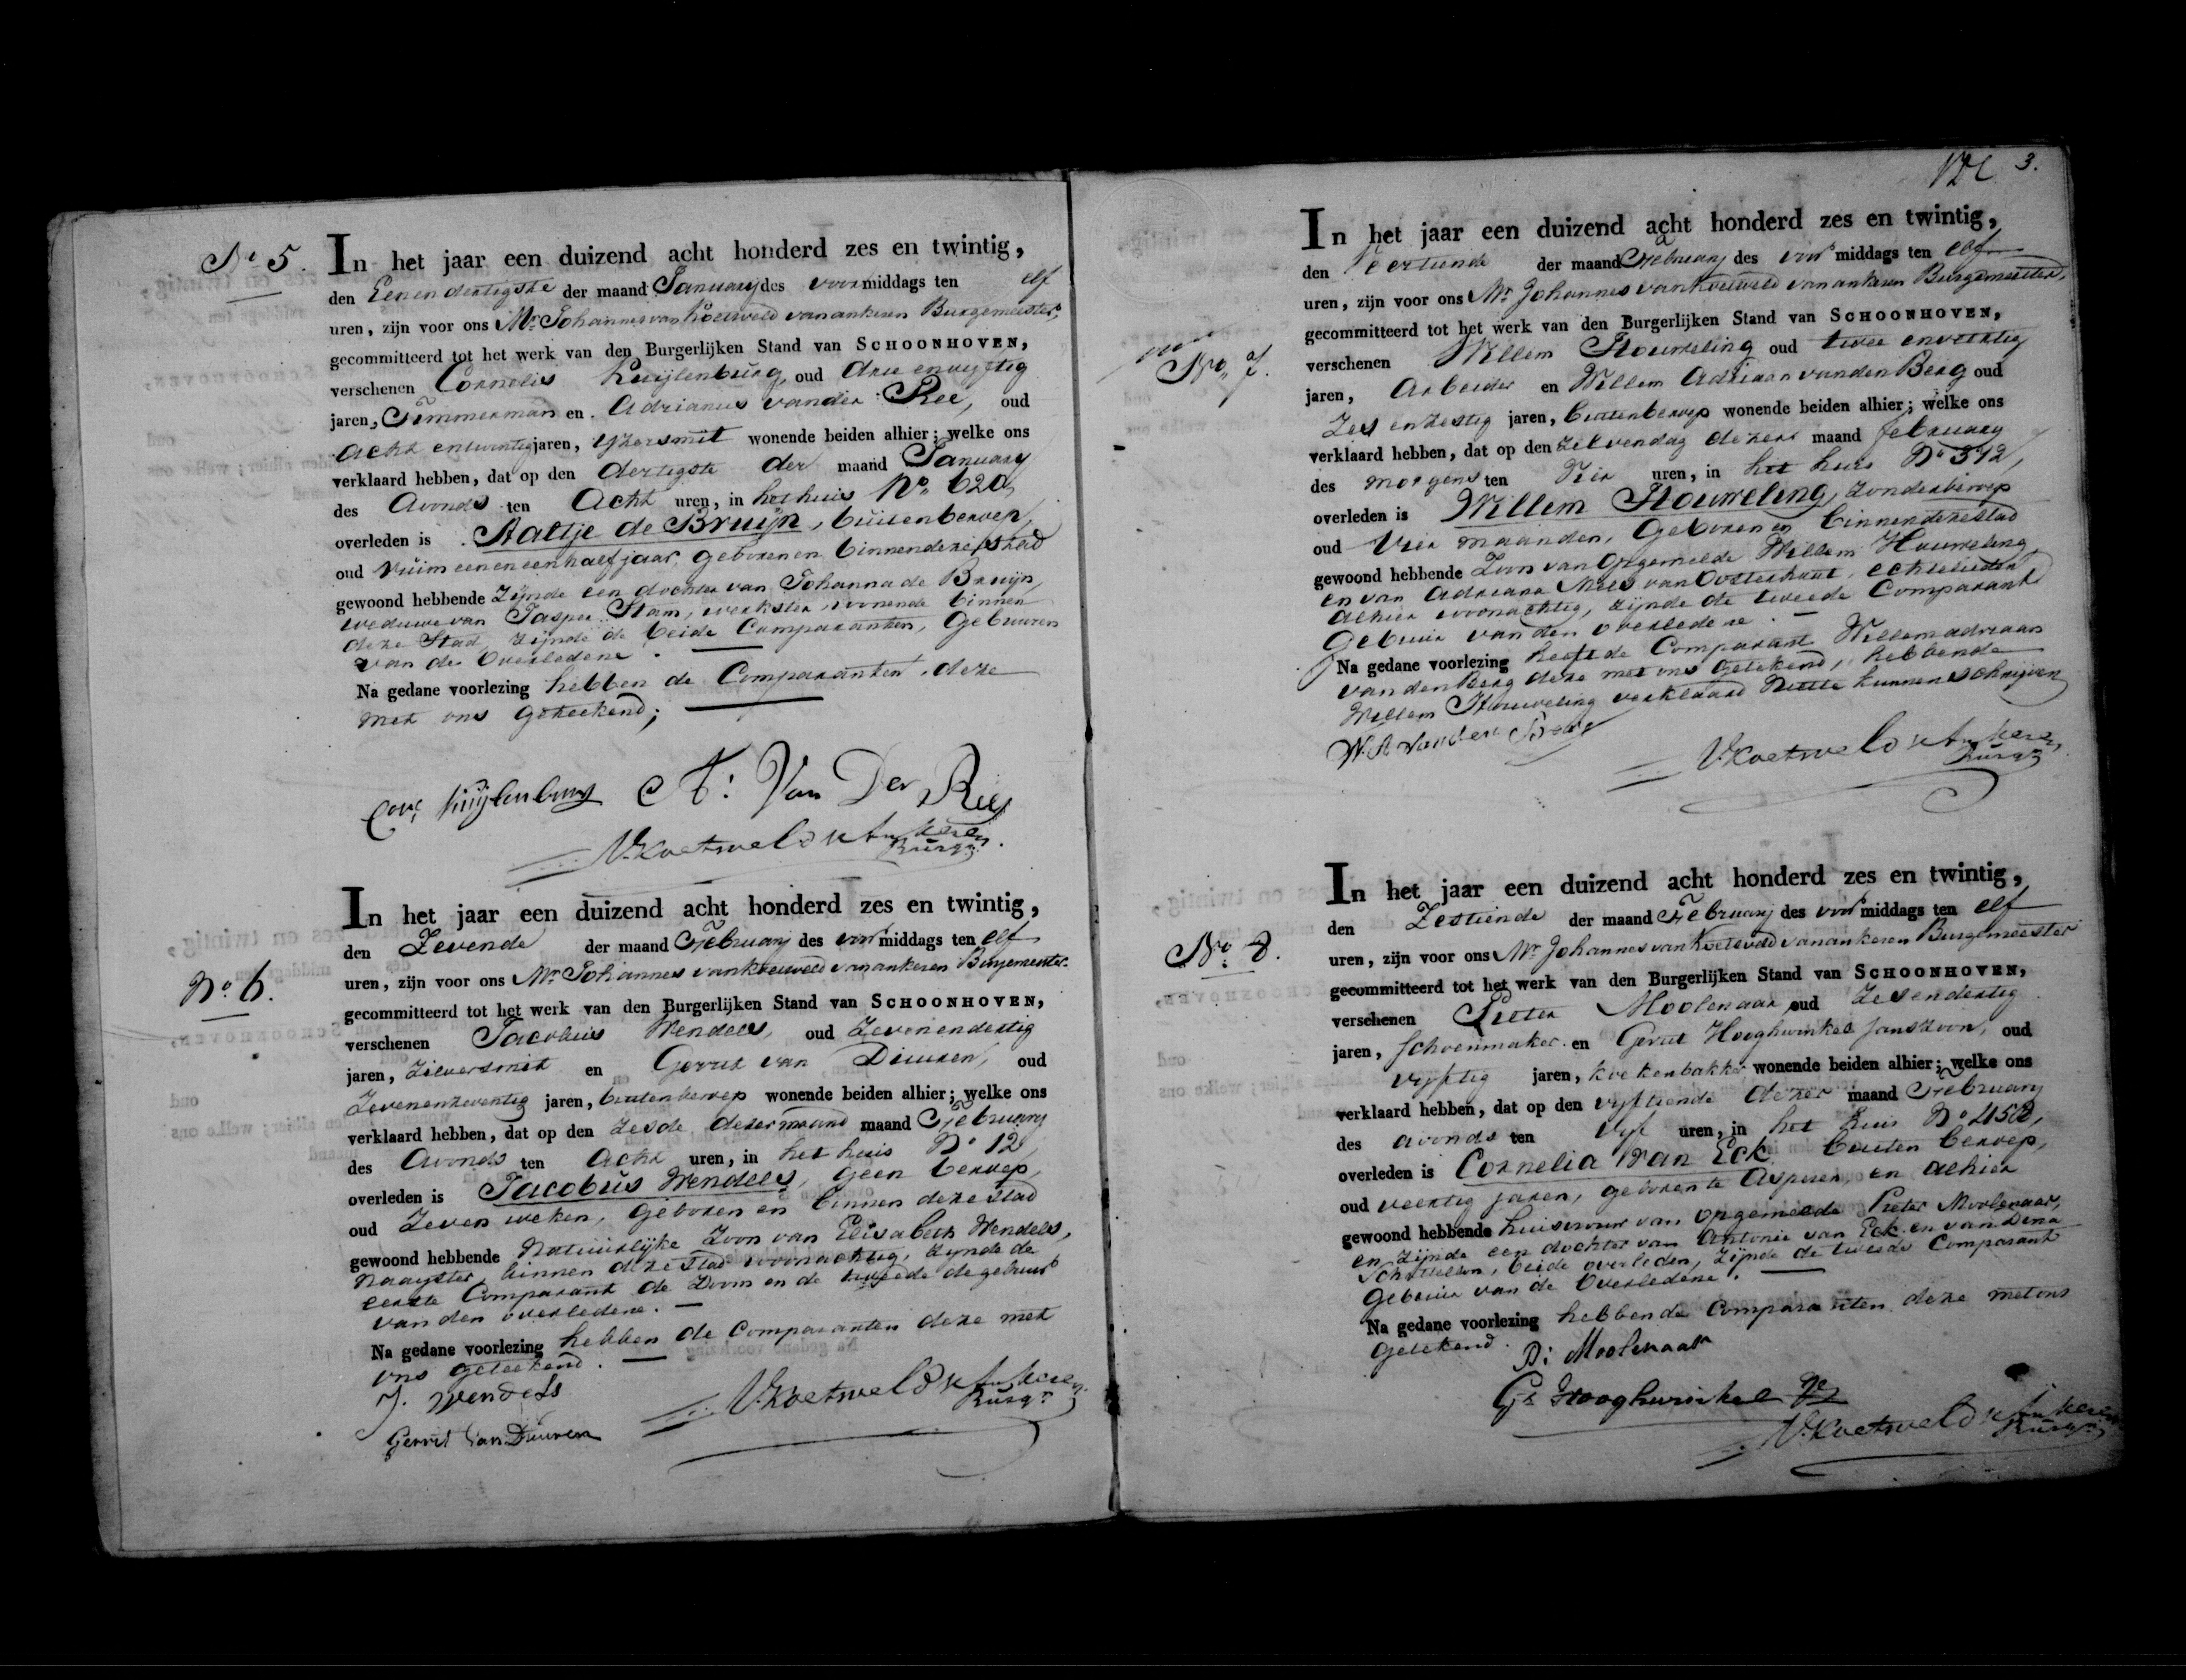 No 5.
In het jaar een duizend acht honderd zes en twintig,
den Eenendertigste der maand January des voormiddags ten elf
uren, zijn voor ons Mr Johannes van Koetsveld van ankeren Burgemeester,
gecommitteerd tot het werk van den Burgerlijken Stand van SCHOONHOVEN,
verschenen Cornelis Kuijlenburg, oud drie envyftig
jaren, Timmerman en Adrianus vander Ree, oud
acht entwintig jaren, Yzersmit wonende beiden alhier; welke ons
verklaard hebben, dat op den dertigste der maand January
des Avonds ten Acht uren, in het huis No 620,
overleden is Aaltje de Bruijn, buitenberoep,
oud ruim eeneneenhalf jaar, geboren en binnen deze stad
gewoond hebbende zijnde een dochter van Johanna de Bruijn,
weduwe van Jasper Stam, werkster, wonende binnen
deze Stad, zijnde de beide Comparanten, Gebuuren
van de Overledene.
Na gedane voorlezing hebben de Comparanten deze
met ons geteekend;
Cors Kuijlenburg A: Van Der Ree
V.Koetsveld v Ankeren
Burgr
No 6.
In het jaar een duizend acht honderd zes en twintig,
den Zevende der maand February des voormiddags ten elf
uren, zijn voor ons Mr Johannes van Koetsveld van ankeren Burgemeester
gecommitteerd tot het werk van den Burgerlijken Stand van SCHOONHOVEN,
verschenen Jacobus Wendels, oud Zevenendertig
jaren, Zilversmit en Gerrit van Duuren, oud
Zevenenzeventig jaren, buitenberoep wonende beiden alhier; welke ons
verklaard hebben, dat op den zesde dezer maand maand February
des Avonds ten Acht uren, in het huis No 12,
overleden is Jacobus Wendels, geen beroep,
oud Zeven weken, geboren en binnen deze stad
gewoond hebbende Natuurlijke Zoon van Elisabeth Wendels,
Naayster, binnen deze stad woonachtig, zynde de
eerste Comparant de Zoom en de tweede de gebuur
van den overledene.
Na gedane voorlezing hebben de Comparanten deze met
ons geteekend.
J. Wendels
V.Koetsveld v Ankeren
Burgr
Gerrit van Duuren
3.
No 7.
In het jaar een duizend acht honderd zes en twintig,
den Veertiende der maand February des voormiddags ten elf
uren, zijn voor ons Mr Johannes van Koetsveld van ankeren Burgemeester,
gecommitteerd tot het werk van den Burgerlijken Stand van SCHOONHOVEN,
verschenen Willem Houweling oud twee enveertig
jaren, Arbeider en Willem Adriaan vanden Berg oud
Zes enzestig jaren, buitenberoep wonende beiden alhier; welke ons
verklaard hebben, dat op den zelvendag dezer maand february
des morgens ten Vier uren, in het huis No 312,
overleden is Willem Houweling, zonderberoep
oud Vier maanden, Geboren en binnendezestad
gewoond hebbende Zoon van Opgemelde Willem Houweling
en van Adriana Mees van Oosterhout, echtelieden
alhier woonachtig, zijnde de tweede Comparant
Gebuur van den overledene.
Na gedane voorlezing heeft de Comparant Willem adriaan
vandenBerg deze met ons getekend, hebbende
Willem Houweling verklaard niet te kunnen schrijven
W. A van den Berg
V.Koetsveld v Ankeren
Burgr
No 8.
In het jaar een duizend acht honderd zes en twintig,
den Zestiende der maand February des voormiddags ten elf
uren, zijn voor ons Mr Johannes van Koetsveld van ankeren Burgemeester
gecommitteerd tot het werk van den Burgerlijken Stand van SCHOONHOVEN,
verschenen Pieter Moolenaar oud Zesendertig
jaren, Schoenmaker en Gerrit Hooghwinkel Janszoon, oud
vyftig jaren, koekenbakker wonende beiden alhier; welke ons
verklaard hebben, dat op den vyftiende dezer maand February
des avonds ten Vyf uren, in het huis No 458,
overleden is Cornelia van Eck buiten beroep,
oud veertig jaren, geboren te Asperen, en alhier
gewoond hebbende huisvrouw van opgemelde Pieter Moolenaar,
en zijnde een dochter van Antonie van Eck en van Dina
beide overleden, zijnde de tweede Comparant
Gebuur van de Overledene.
Na gedane voorlezing hebbende Comparanten deze met ons
getekend.
P: Moolenaar
Gt Hooghwinkel Jz
V.Koetsveld v Ankeren
Burgr